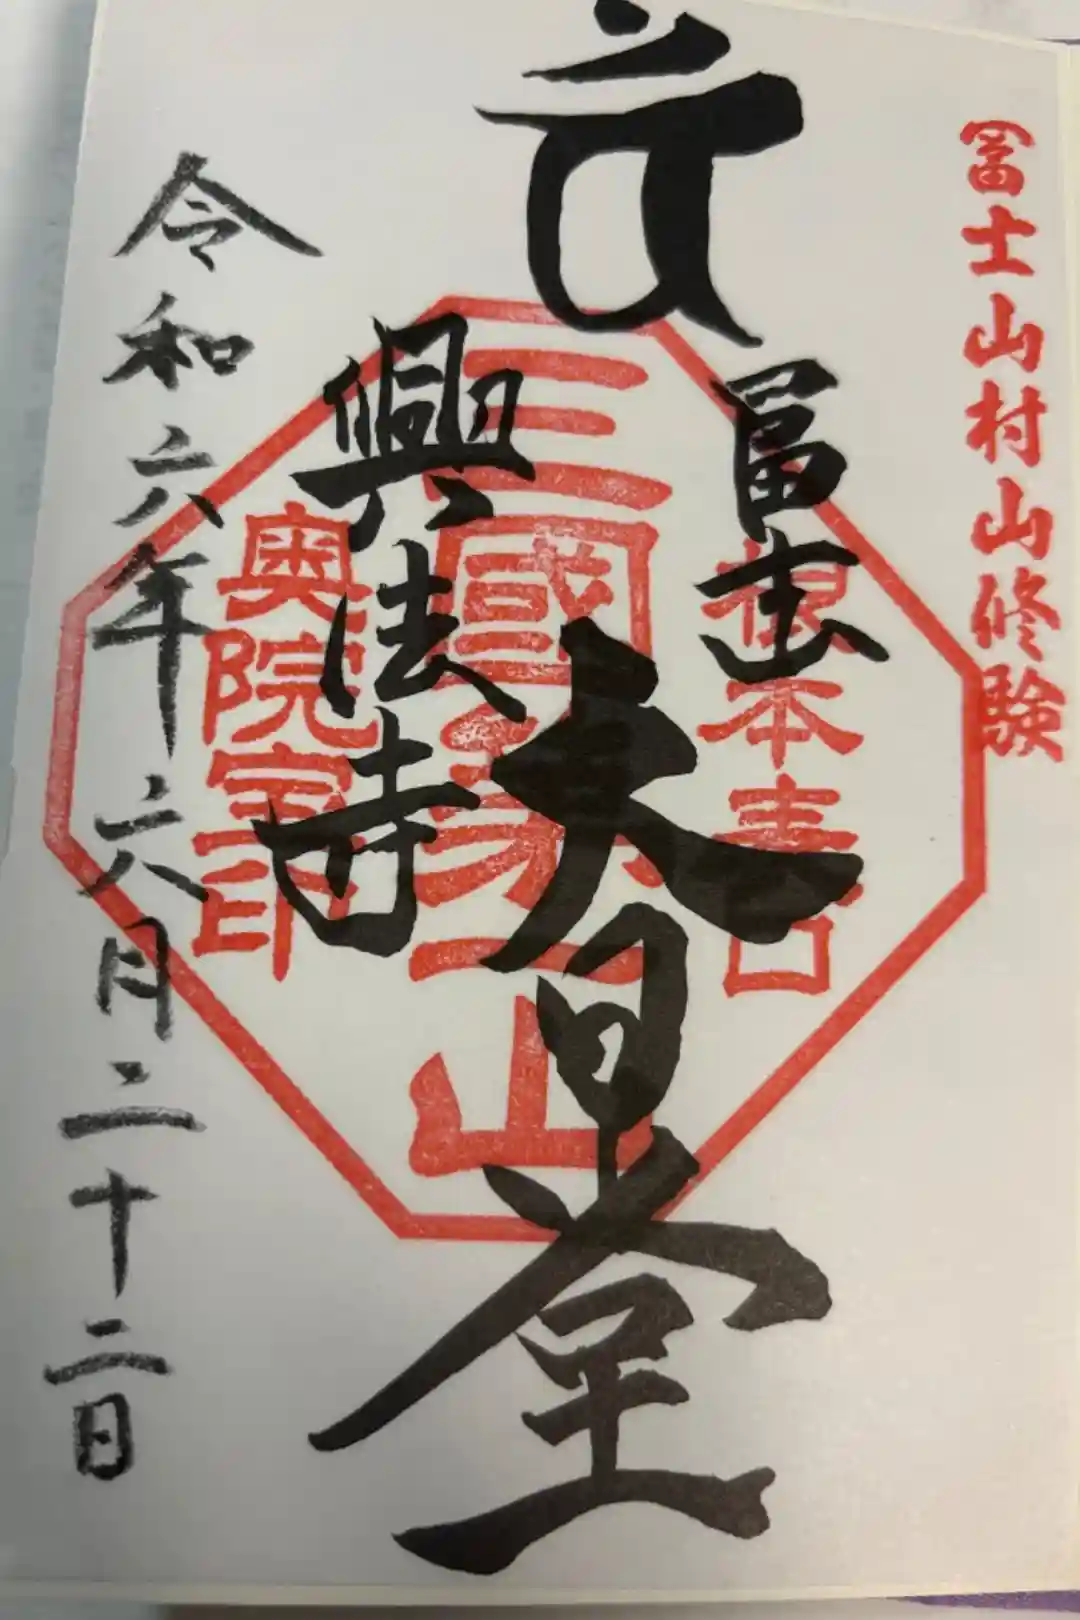 冨士山村山修験
冨士
根本表口
大日堂
三國第一山
興法寺
奥院宝印
令和六年六月二十二日